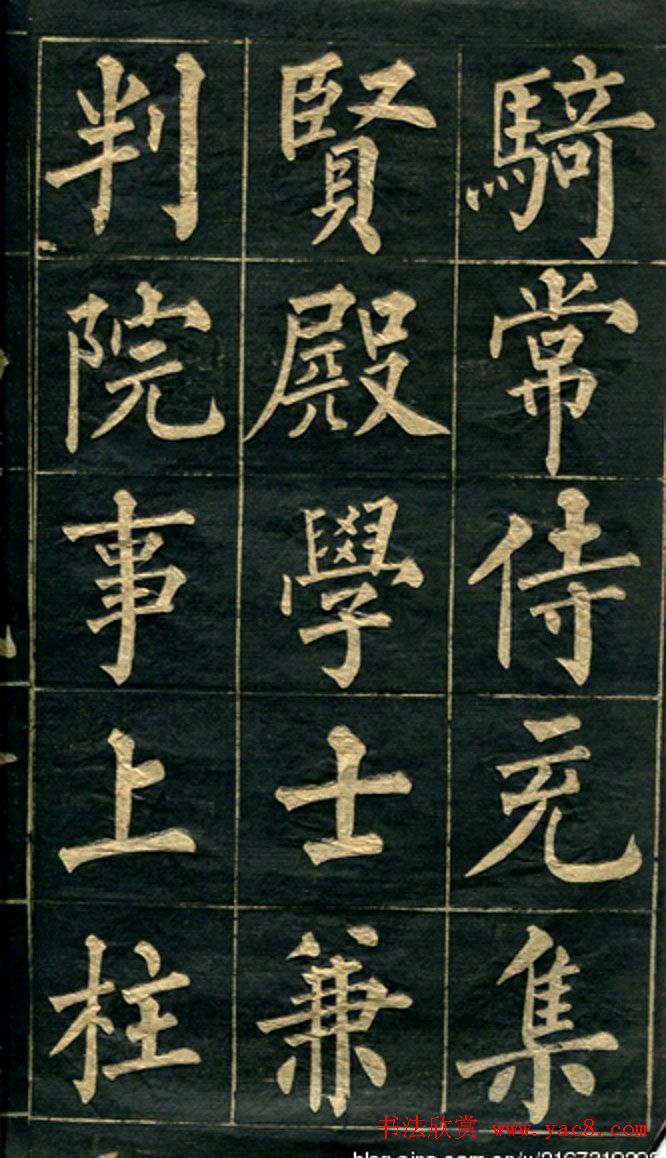 騎常侍充集
賢殿學士兼
判院事上柱
书法欣赏 www.yac8.com